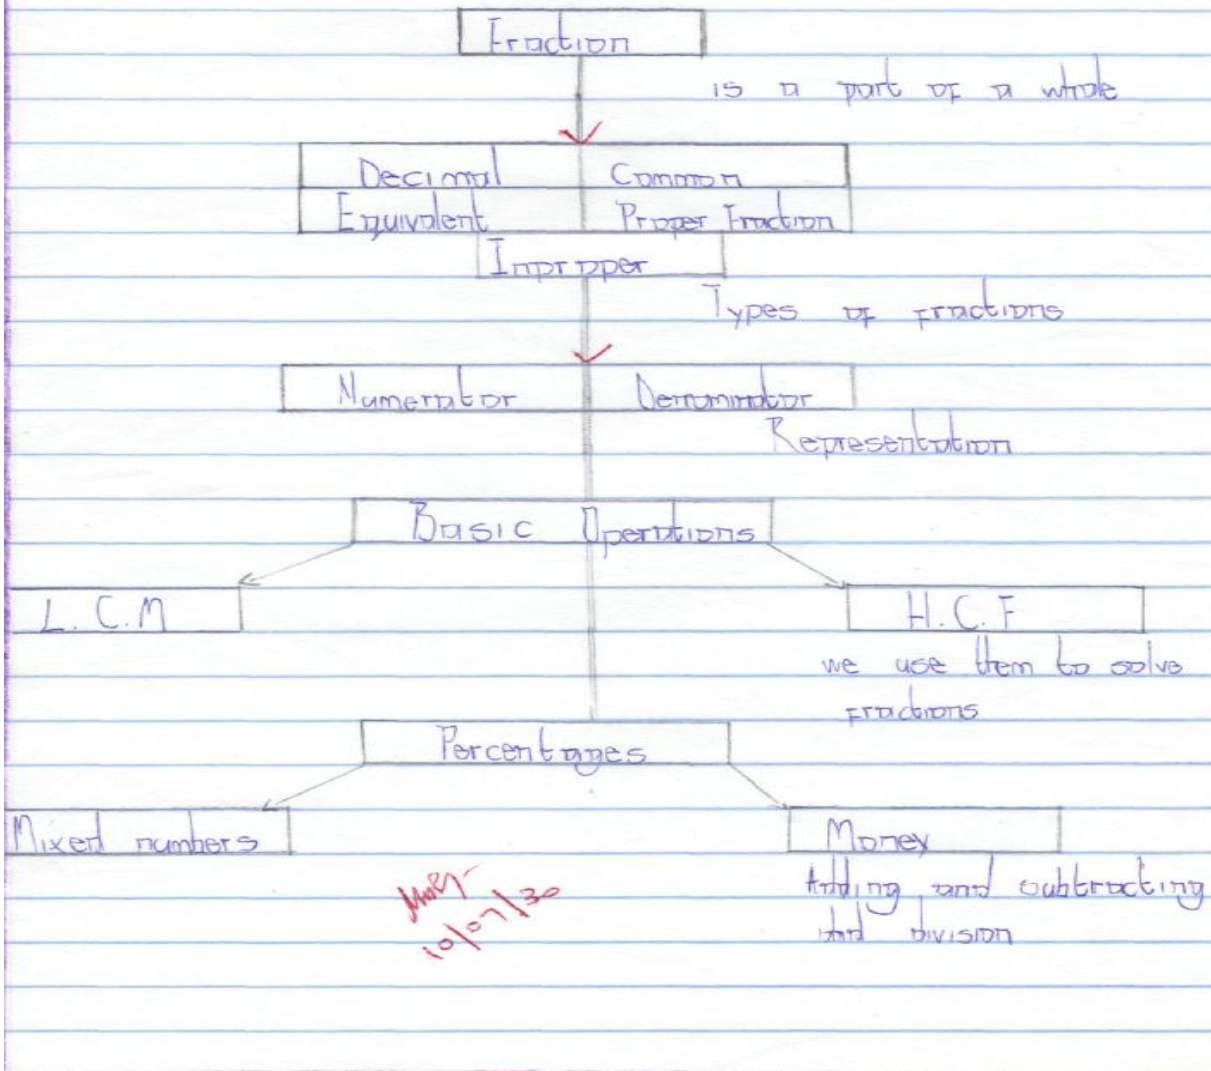 Fraction
is a part of a whole
Decimal Common
Equivalent Proper Fraction
Inproper
Types of fractions
Numerator Denominator
Representation
Basic Operations
L.C.M H.C.F
we use them to solve
fractions
Percentages
Mixed numbers Money
Adding and subtracting
and division
10/07/30